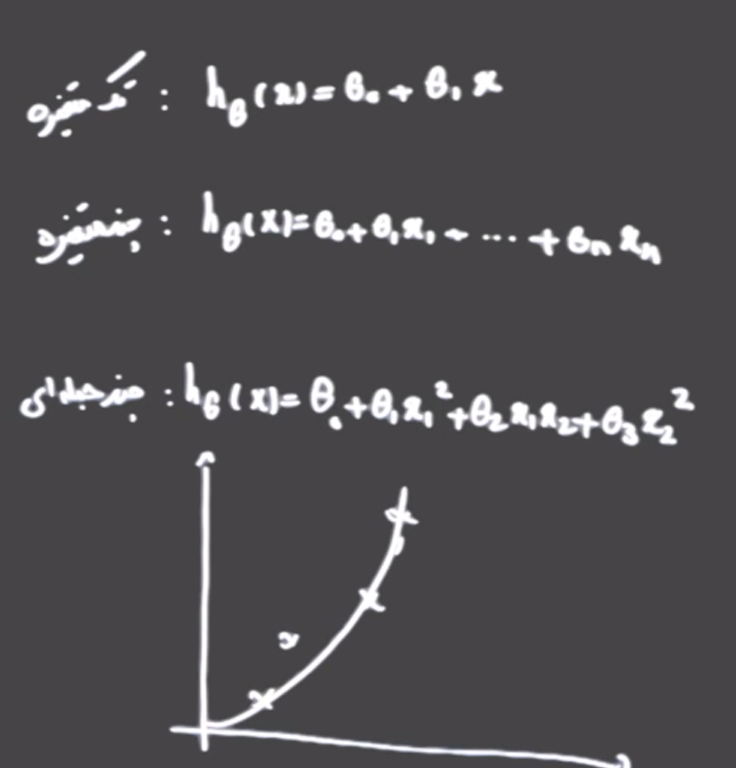 تک متغیره : h_θ(x) = θ₀ + θ₁ x
چند متغیره : h_θ(X) = θ₀ + θ₁ x₁ + ... + θn xn
چند جمله‌ای : h_θ(X) = θ₀ + θ₁ x₁² + θ₂ x₁ x₂ + θ₃ x₂²